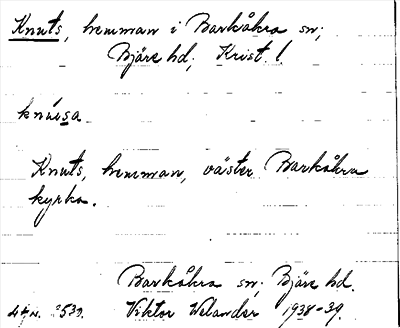 Knuts, hemman i Barkåkra sn;
Bjäre hd; Krist. l.
knúsa
Knuts, hemman, väster Barkåkra
kyrka.
Barkåkra sn; Bjäre hd.
Viktor Welander 1938-39.